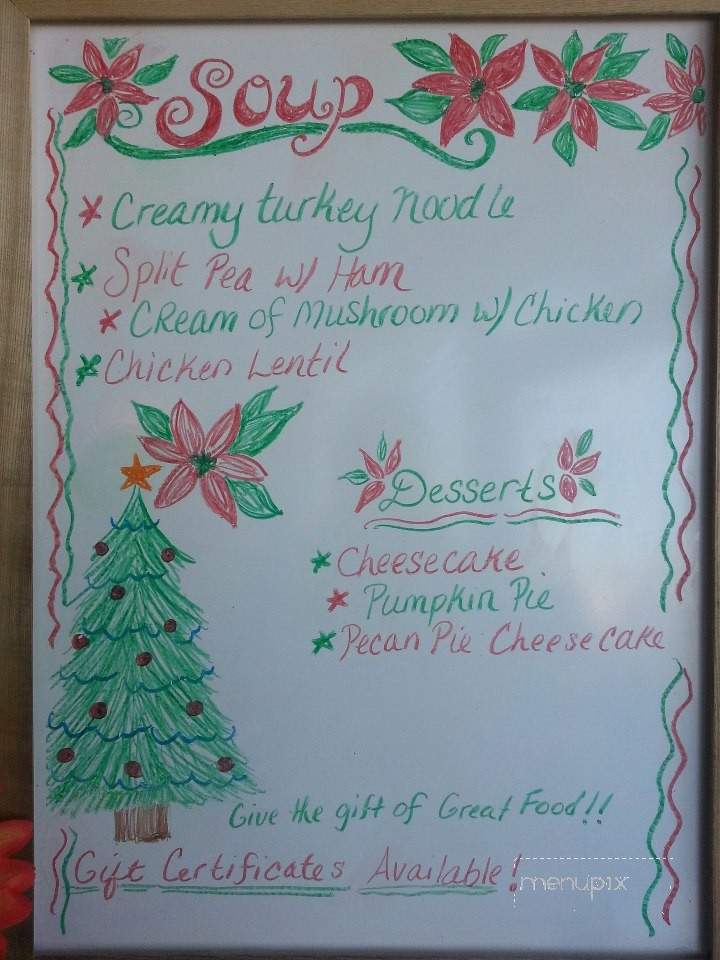 Soup
Creamy turkey Noodle
Split Pea w/ Ham
CReam of Mushroom w/ Chicken
Chicken Lentil
Desserts
Cheesecake
Pumpkin Pie
Pecan Pie Cheesecake
Give the gift of Great Food!!
Gift Certificates Available!
menupix